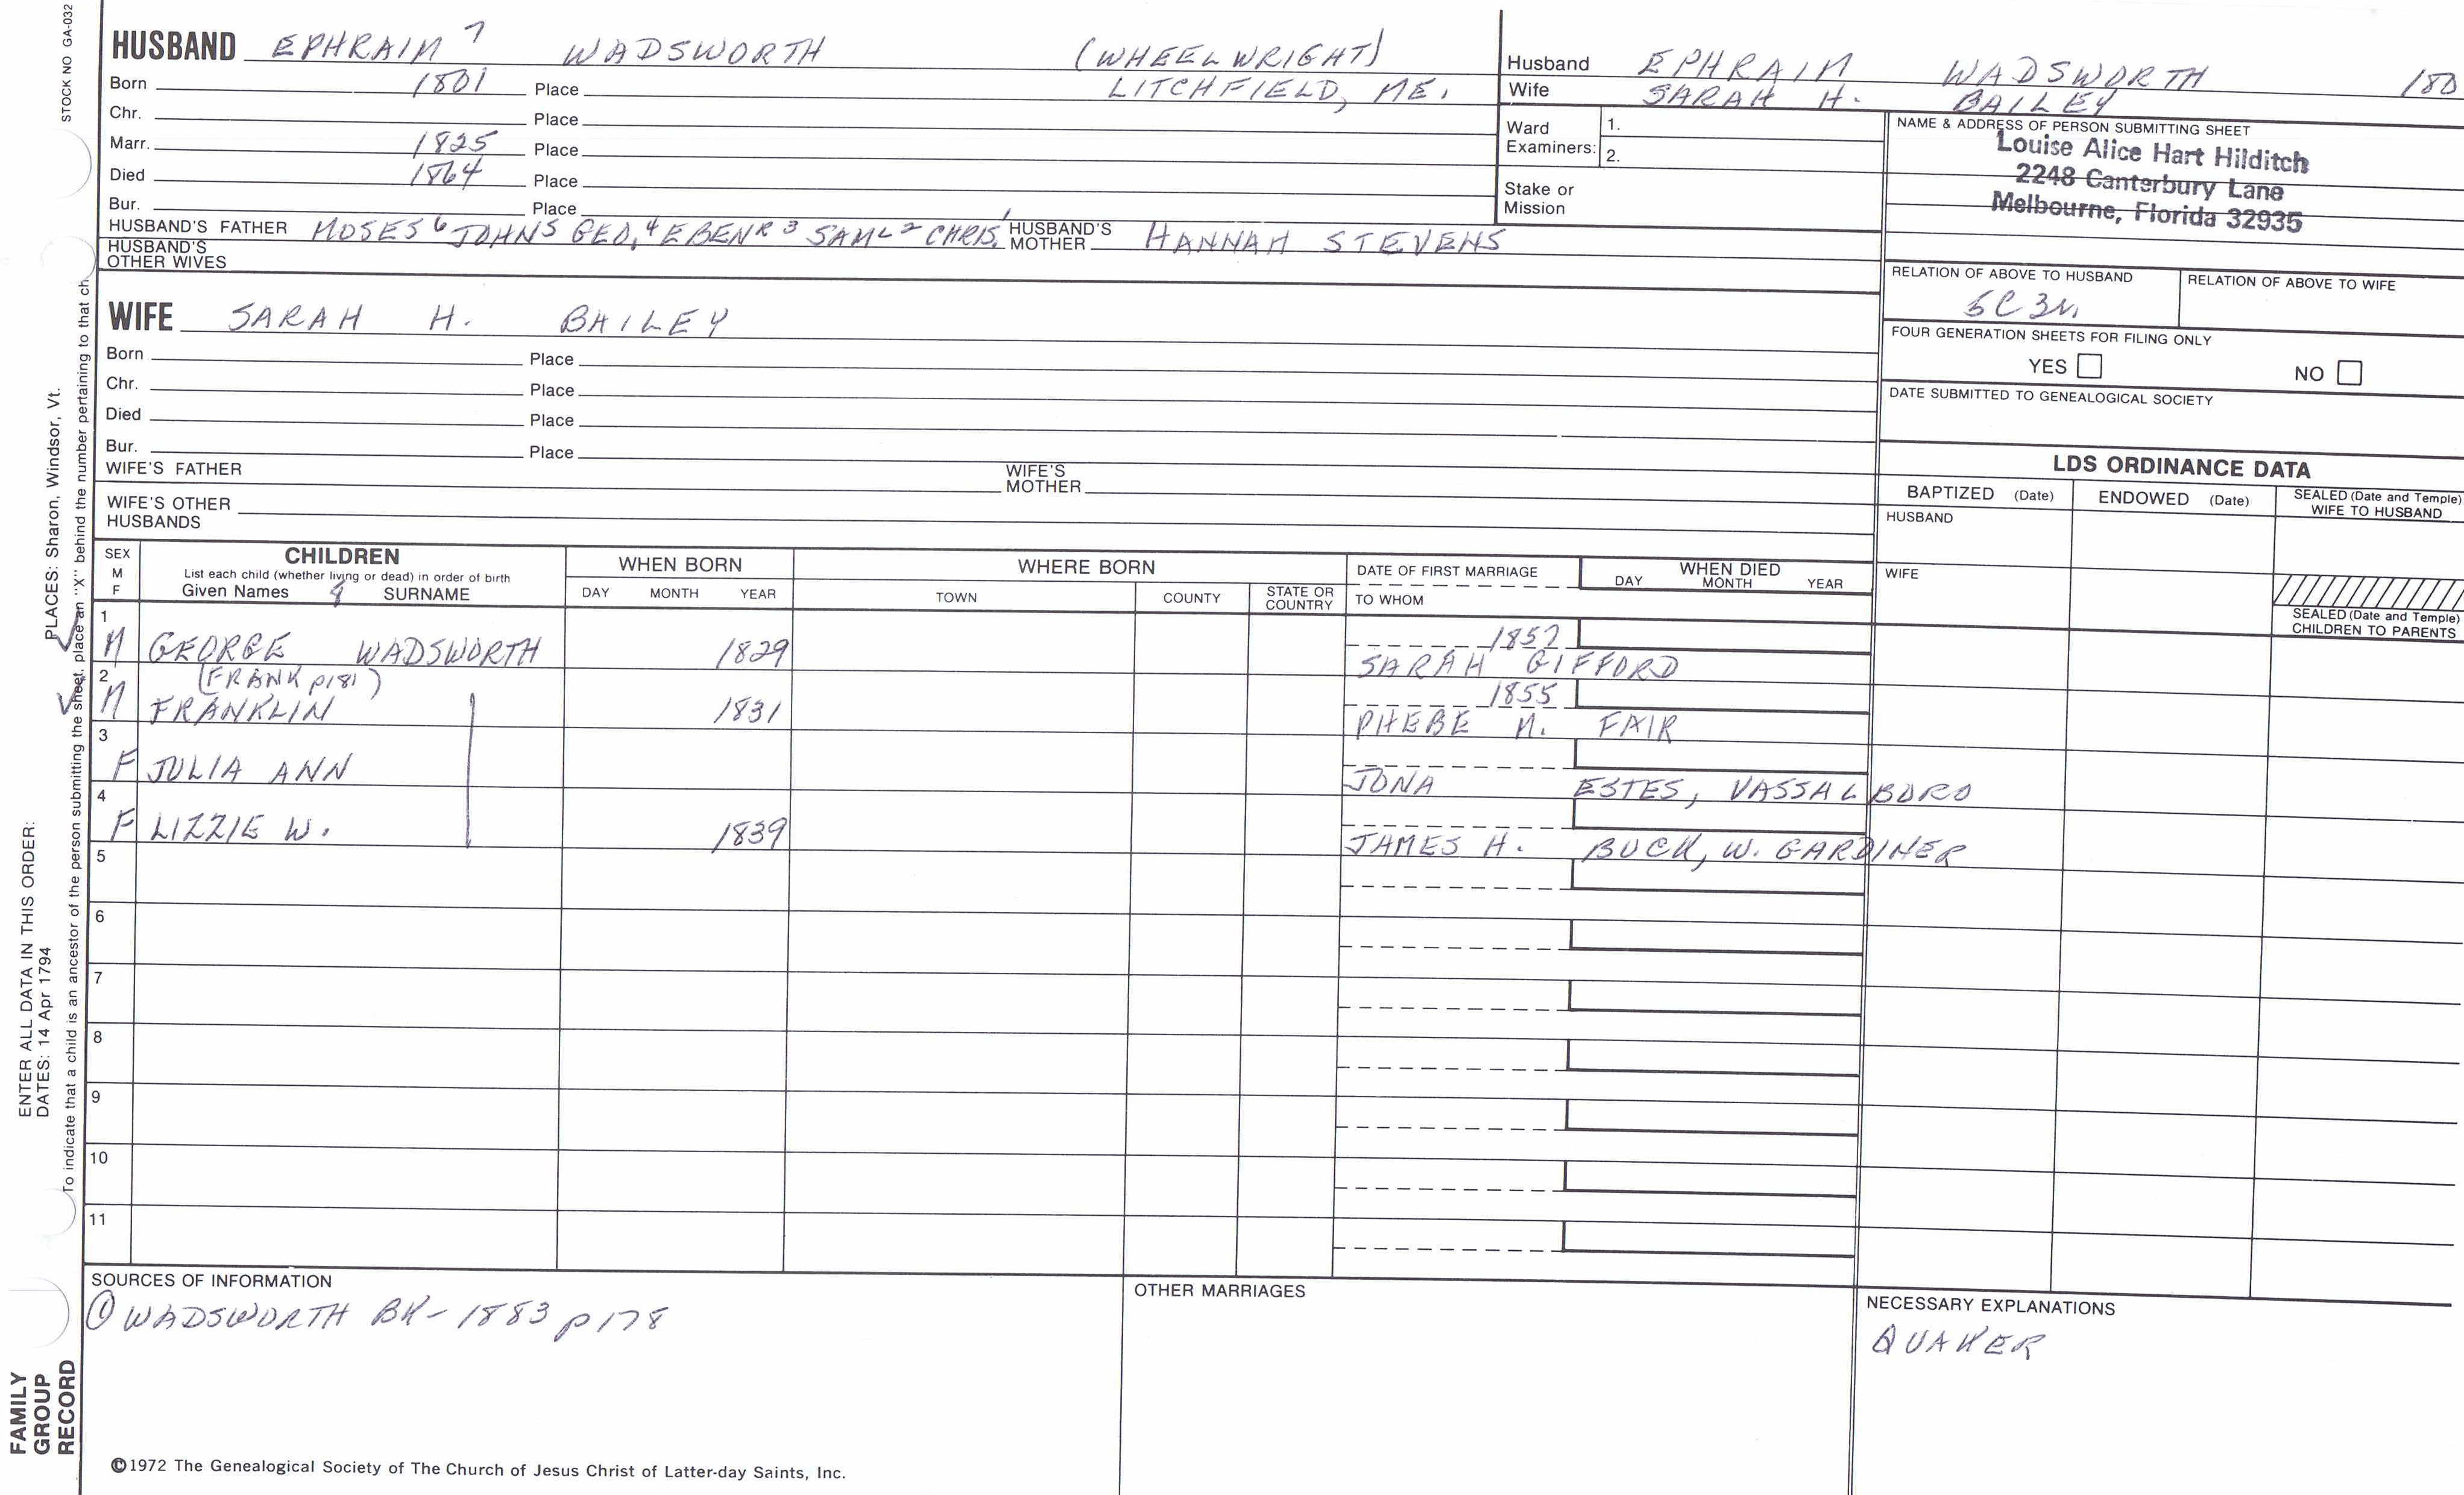 STOCK NO GA-032
HUSBAND EPHRAIM 7 WADSWORTH (WHEELWRIGHT)
Born 1801 Place LITCHFIELD, ME.
Chr. Place
Marr. 1825 Place
Died 1864 Place
Bur. Place
HUSBAND'S FATHER MOSES 6 JOHN 5 GEO. 4 EBENR 3 SAML 2 CHRIS. 1 HUSBAND'S MOTHER HANNAH STEVENS
HUSBAND'S OTHER WIVES
Husband EPHRAIM WADSWORTH 180
Wife SARAH H. BAILEY
Ward Examiners: 1.
2.
Stake or Mission
NAME & ADDRESS OF PERSON SUBMITTING SHEET
Louise Alice Hart Hilditch
2248 Canterbury Lane
Melbourne, Florida 32935
RELATION OF ABOVE TO HUSBAND RELATION OF ABOVE TO WIFE
5C3R.
FOUR GENERATION SHEETS FOR FILING ONLY
YES NO
DATE SUBMITTED TO GENEALOGICAL SOCIETY
WIFE SARAH H. BAILEY
Born Place
Chr. Place
Died Place
Bur. Place
WIFE'S FATHER WIFE'S MOTHER
WIFE'S OTHER HUSBANDS
LDS ORDINANCE DATA
BAPTIZED (Date) ENDOWED (Date) SEALED (Date and Temple) WIFE TO HUSBAND
HUSBAND
WIFE
SEALED (Date and Temple) CHILDREN TO PARENTS
SEX M F CHILDREN WHEN BORN WHERE BORN DATE OF FIRST MARRIAGE WHEN DIED
List each child (whether living or dead) in order of birth
Given Names SURNAME DAY MONTH YEAR TOWN COUNTY STATE OR COUNTRY TO WHOM DAY MONTH YEAR
1 M GEORGE WADSWORTH 1829 1857
SARAH GIFFORD
2 (FRANK p181) 1855
M FRANKLIN 1831 PHEBE M. FAIR
3
F JULIA ANN JONA ESTES, VASSALBORO
4
F LIZZIE W. 1839 JAMES H. BUCK, W. GARDINER
5
6
7
8
9
10
11
SOURCES OF INFORMATION OTHER MARRIAGES NECESSARY EXPLANATIONS
① WADSWORTH BK - 1883 p178
QUAKER
©1972 The Genealogical Society of The Church of Jesus Christ of Latter-day Saints, Inc.
FAMILY GROUP RECORD
ENTER ALL DATA IN THIS ORDER:
DATES: 14 Apr 1794
PLACES: Sharon, Windsor, Vt.
To indicate that a child is an ancestor of the person submitting the sheet, place an "X" behind the number pertaining to that ch